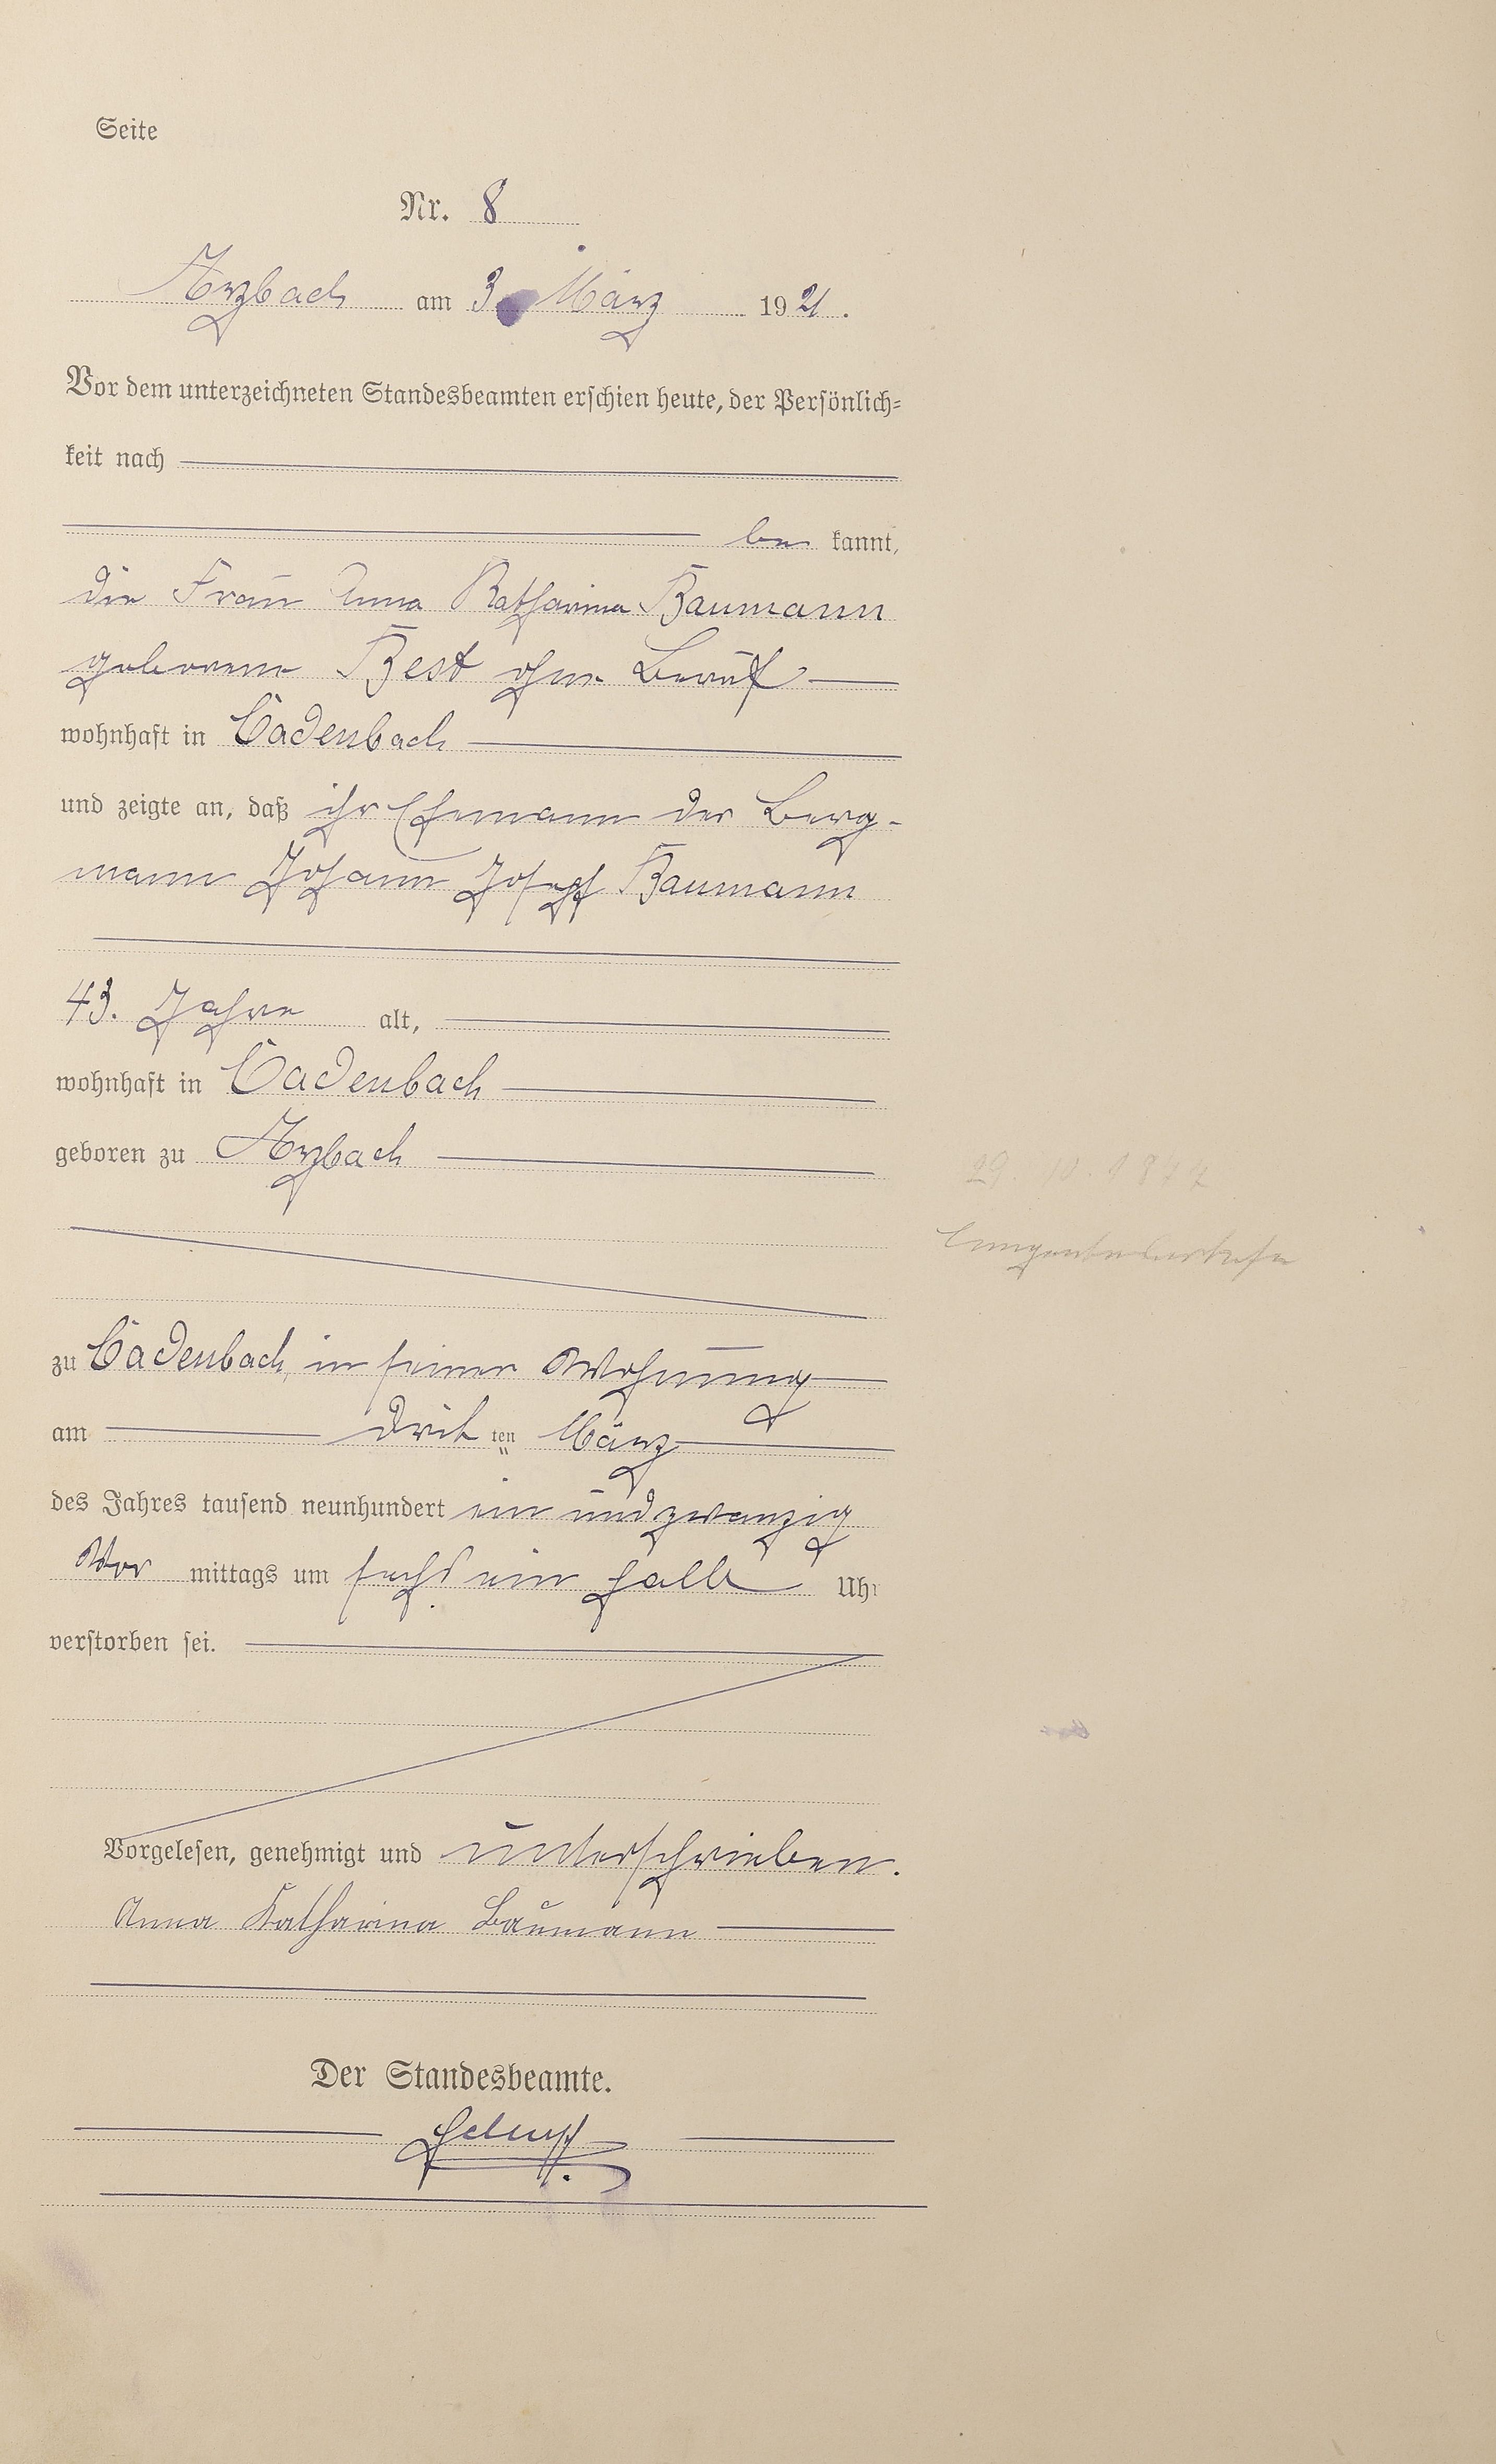 Seite
Nr. 8
Arzbach am 3. März 1921.
Vor dem unterzeichneten Standesbeamten erschien heute, der Persönlich-
keit nach
be kannt,
die Frau Anna Katharina Baumann
geborene Best ohne Beruf
wohnhaft in Cadenbach
und zeigte an, daß ihr Ehemann der Berg-
mann Johann Josef Baumann
43. Jahre alt,
wohnhaft in Cadenbach
geboren zu Arzbach
29. 10. 1877
Lungentuberkulose
zu Cadenbach, in seiner Wohnung
am drit ten März
des Jahres tausend neunhundert ein und zwanzig
Vor mittags um sechs ein halb Uhr
verstorben sei.
Vorgelesen, genehmigt und unterschrieben.
Anna Katharina Baumann
Der Standesbeamte.